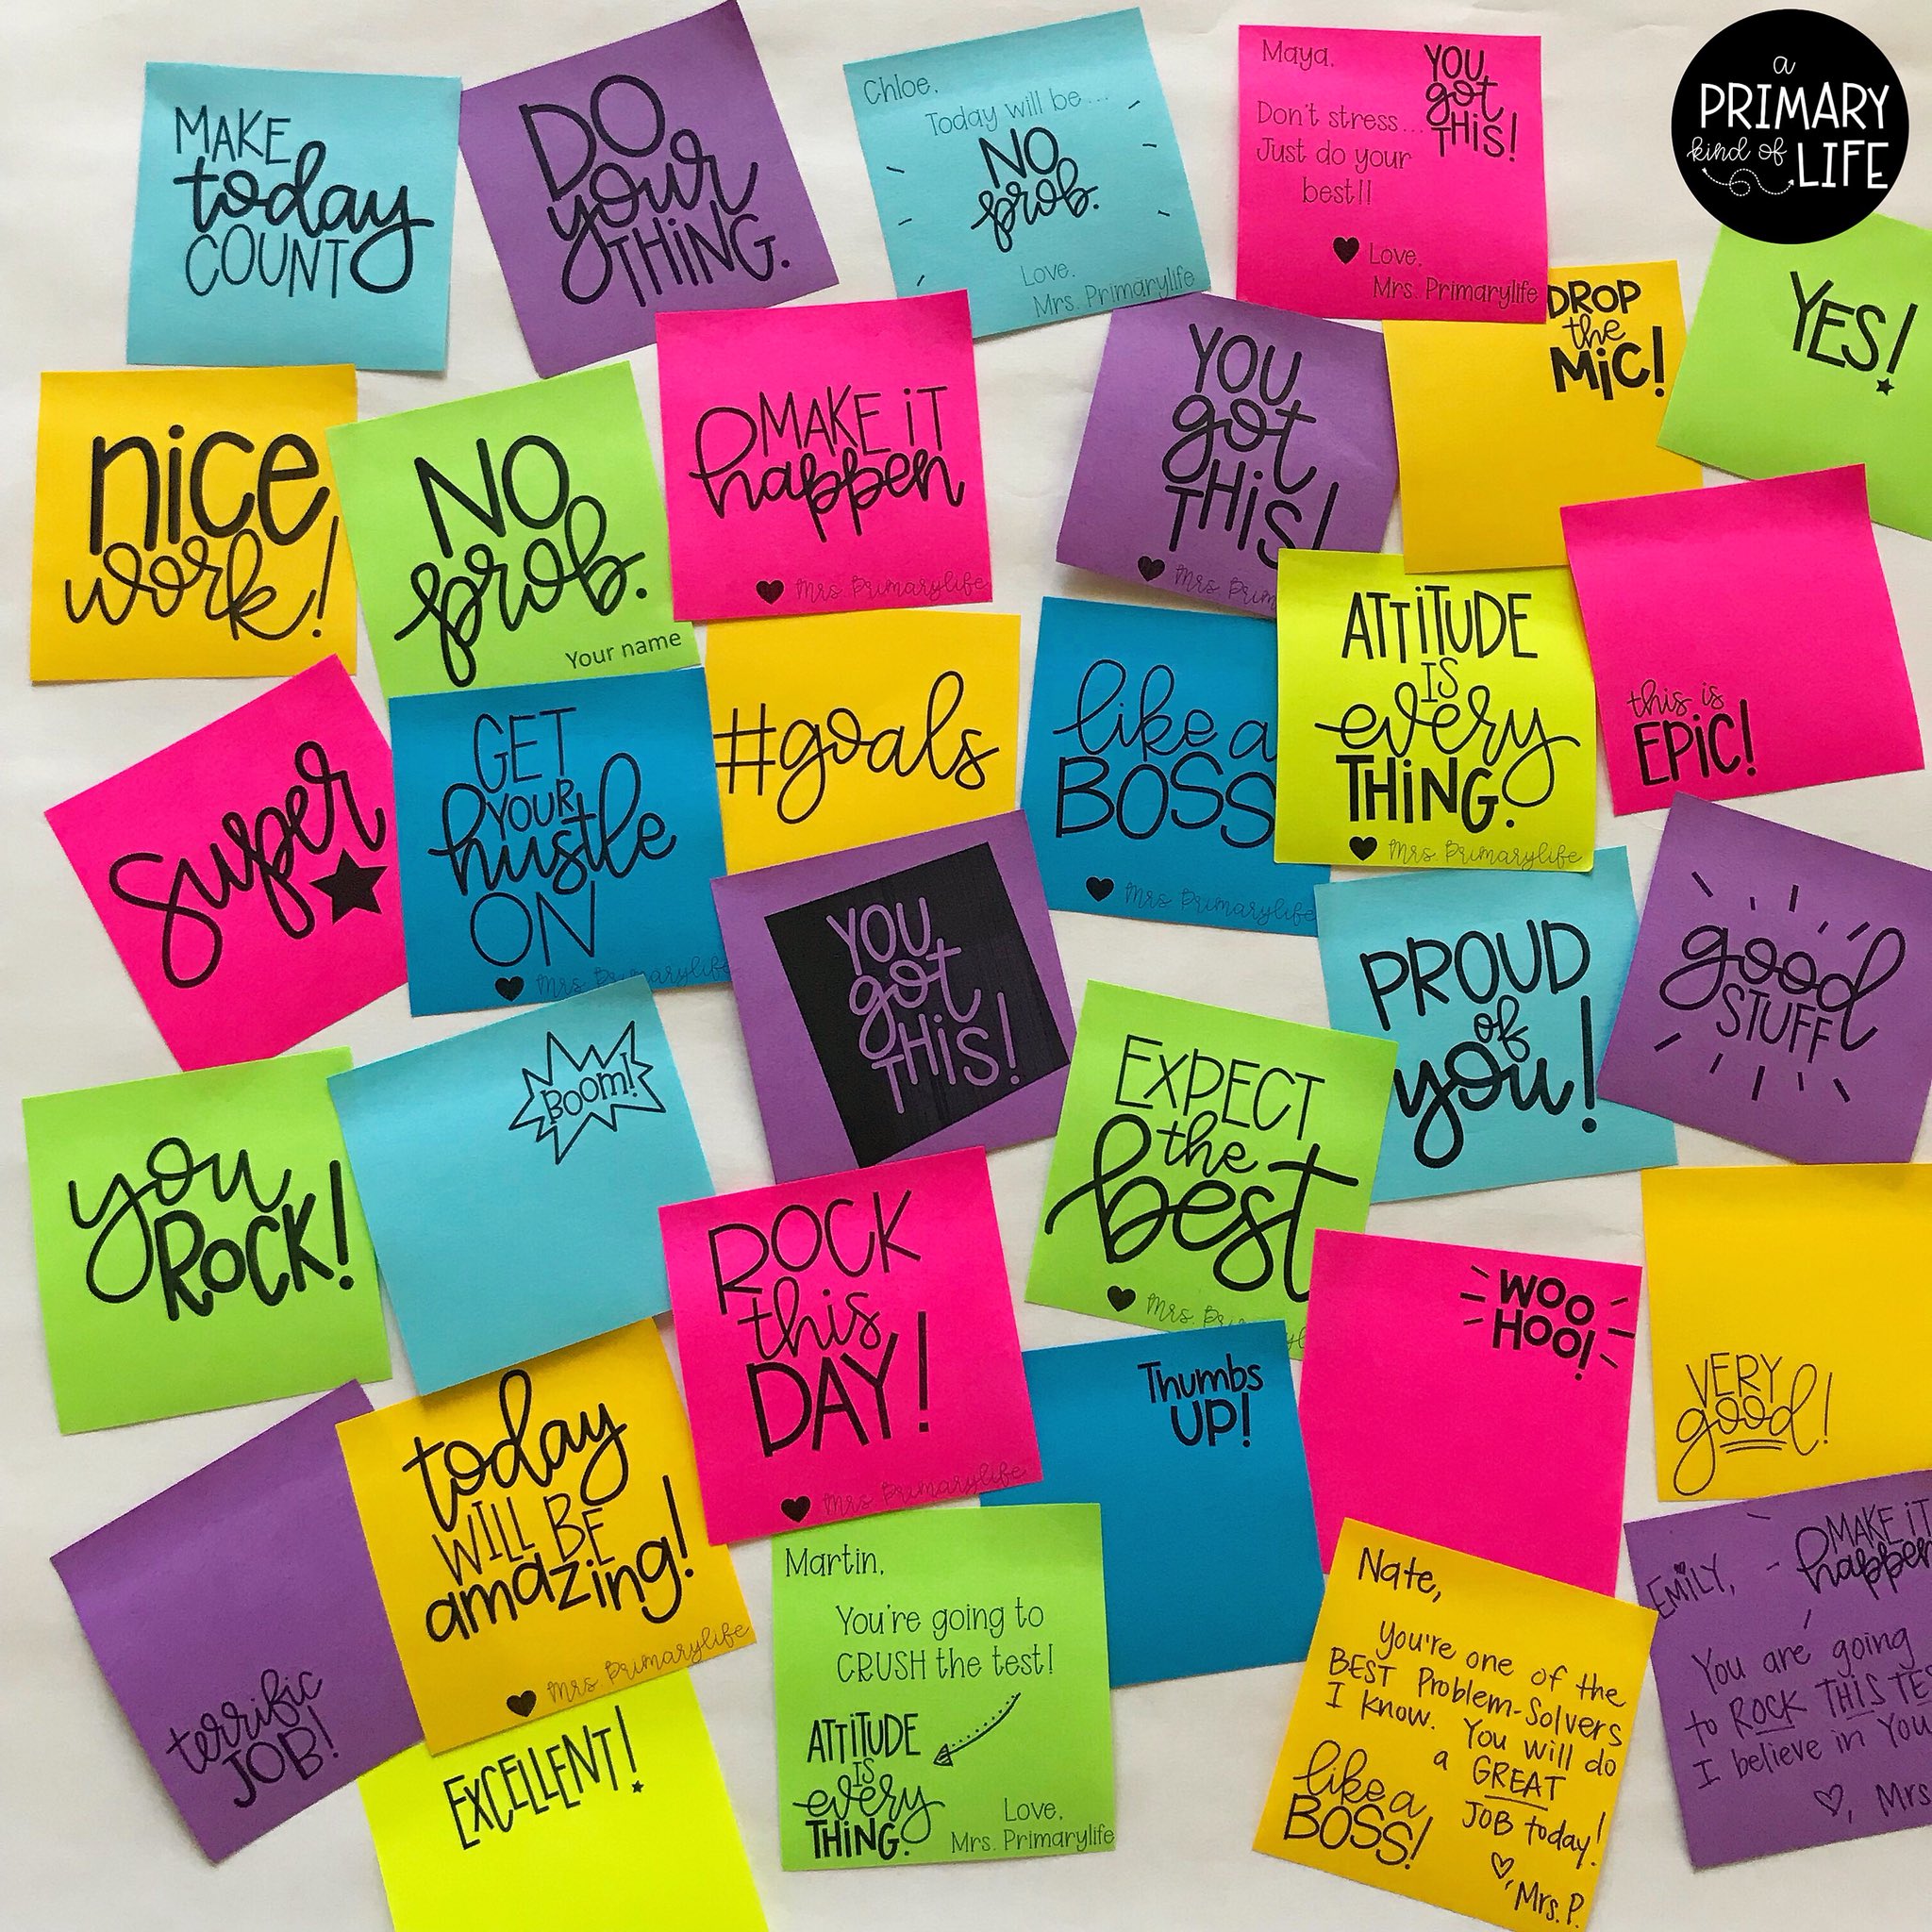 MAKE
today
COUNT
DO
your
THING.
Chloe,
Today will be...
NO
prob.
Love,
Mrs. Primarylife
Maya,
YOU
got
THIS!
Don't stress...
Just do your
best!!
Love,
Mrs. Primarylife
a
PRIMARY
kind of
LIFE
nice
work!
NO
prob.
Your name
MAKE IT
happen
Mrs. Primarylife
YOU
got
THIS!
Mrs. Prim
DROP
the
MIC!
YES!
super
GET
YOUR
hustle
ON
Mrs. Primarylife
#goals
like a
BOSS
Mrs. Primarylife
ATTITUDE
IS
every
THING.
Mrs. Primarylife
this is
EPIC!
YOU
got
THIS!
PROUD
of
you!
good
STUFF
you
ROCK!
BOOM!
EXPECT
the
best
Mrs. Primaryl
ROCK
this
DAY!
Mrs. Primarylife
Thumbs
UP!
WOO
HOO!
VERY
good!
terrific
JOB!
today
WILL BE
amazing!
Mrs. Primarylife
EXCELLENT!
Martin,
You're going to
CRUSH the test!
ATTITUDE
IS
every
THING.
Love,
Mrs. Primarylife
Nate,
You're one of the
BEST Problem-Solvers
I know. You will do
a GREAT
JOB today!
like a
BOSS!
, Mrs. P.
EMILY,
MAKE IT
happen
You are going
to ROCK THIS TE
I believe in You
, Mrs